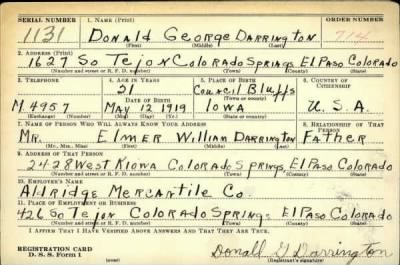 SERIAL NUMBER 1. NAME (Print) ORDER NUMBER
1131 DONALD GEORGE DARRINGTON 714
(First) (Middle) (Last)
2. ADDRESS (Print)
1627 So TEJON COLORADO SPRINGS EL PASO COLORADO
(Number and street or R. F. D. number) (Town) (County) (State)
3. TELEPHONE 4. AGE IN YEARS 5. PLACE OF BIRTH 6. COUNTRY OF CITIZENSHIP
21 COUNCIL BLUFFS
DATE OF BIRTH (Town or county)
M 4957 MAY 12 1919 IOWA U.S.A.
(Exchange) (Number) (Mo.) (Day) (Yr.) (State or country)
7. NAME OF PERSON WHO WILL ALWAYS KNOW YOUR ADDRESS 8. RELATIONSHIP OF THAT PERSON
MR. ELMER WILLIAM DARRINGTON FATHER
(Mr., Mrs., Miss) (First) (Middle) (Last)
9. ADDRESS OF THAT PERSON
2428 WEST KIOWA COLORADO SPRINGS EL PASO COLORADO
(Number and street or R. F. D. number) (Town) (County) (State)
10. EMPLOYER'S NAME
ALDRIDGE MERCANTILE CO.
11. PLACE OF EMPLOYMENT OR BUSINESS
426 So TEJON COLORADO SPRINGS EL PASO COLORADO
(Number and street or R. F. D. number) (Town) (County) (State)
I AFFIRM THAT I HAVE VERIFIED ABOVE ANSWERS AND THAT THEY ARE TRUE.
REGISTRATION CARD
D. S. S. Form 1 (over) Donald G Darrington
(Registrant's signature)